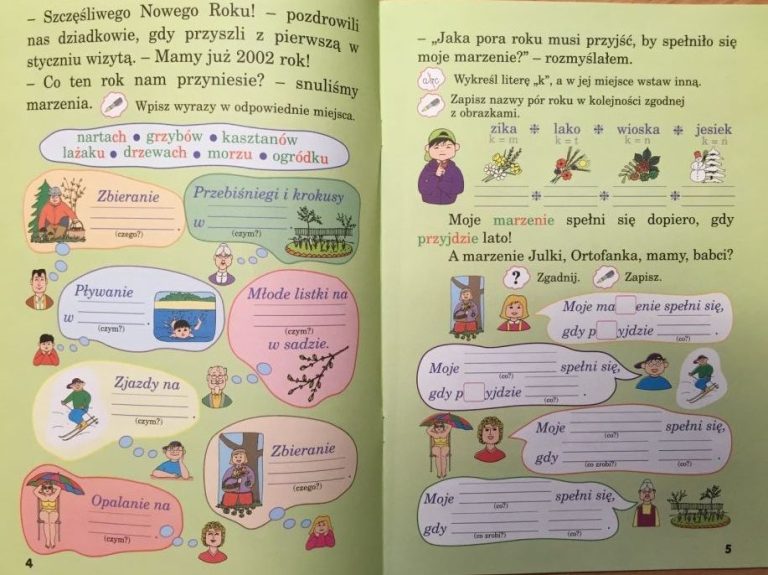 – Szczęśliwego Nowego Roku! – pozdrowili
nas dziadkowie, gdy przyszli z pierwszą w
styczniu wizytą. – Mamy już 2002 rok!
– Co ten rok nam przyniesie? – snuliśmy
marzenia.
Wpisz wyrazy w odpowiednie miejsca.
nartach • grzybów • kasztanów
lażaku • drzewach • morzu • ogródku
Zbieranie
(czego?)
.
Przebiśniegi i krokusy
w
(czym?)
.
Pływanie
w
(czym?)
.
Młode listki na
(czym?)
w sadzie.
Zjazdy na
(czym?)
.
Zbieranie
(czego?)
.
Opalanie na
(czym?)
.
4
– „Jaka pora roku musi przyjść, by spełniło się
moje marzenie?” – rozmyślałem.
abc
Wykreśl literę „k”, a w jej miejsce wstaw inną.
Zapisz nazwy pór roku w kolejności zgodnej
z obrazkami.
zika ❉ lako ❉ wioska ❉ jesiek
k = m k = t k = n k = n
Moje marzenie spełni się dopiero, gdy
przyjdzie lato!
A marzenie Julki, Ortofanka, mamy, babci?
? Zgadnij. Zapisz.
Moje ma☐enie spełni się,
gdy p☐yjdzie
(co?)
.
Moje spełni się,
(co?)
gdy p☐yjdzie
(co?)
.
Moje spełni się,
(co?)
gdy .
(co zrobi?) (co?)
Moje spełni się,
(co?)
gdy .
(co zrobi?) (co?)
5